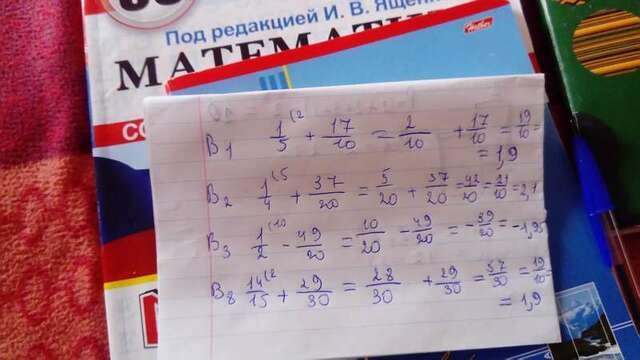 Под редакцией И. В. Ященко
МАТЕМАТИ
В1 1/5 (2 + 17/10 = 2/10 + 17/10 = 19/10 =
= 1,9
В2 1/4 (5 + 37/20 = 5/20 + 37/20 = 42/20 = 21/10 = 2,1
В3 1/2 (10 - 49/20 = 10/20 - 49/20 = -39/20 = -1,95
В8 14/15 (2 + 29/30 = 28/30 + 29/30 = 57/30 = 19/10 =
= 1,9